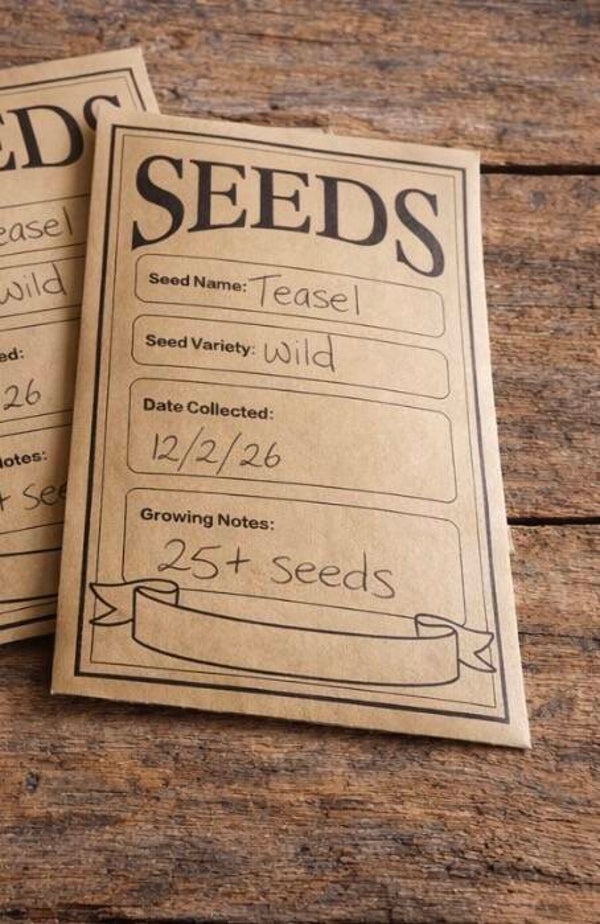 EDS
easel
wild
ed:
26
lotes:
+ see
SEEDS
Seed Name: Teasel
Seed Variety: Wild
Date Collected:
12/2/26
Growing Notes:
25+ seeds